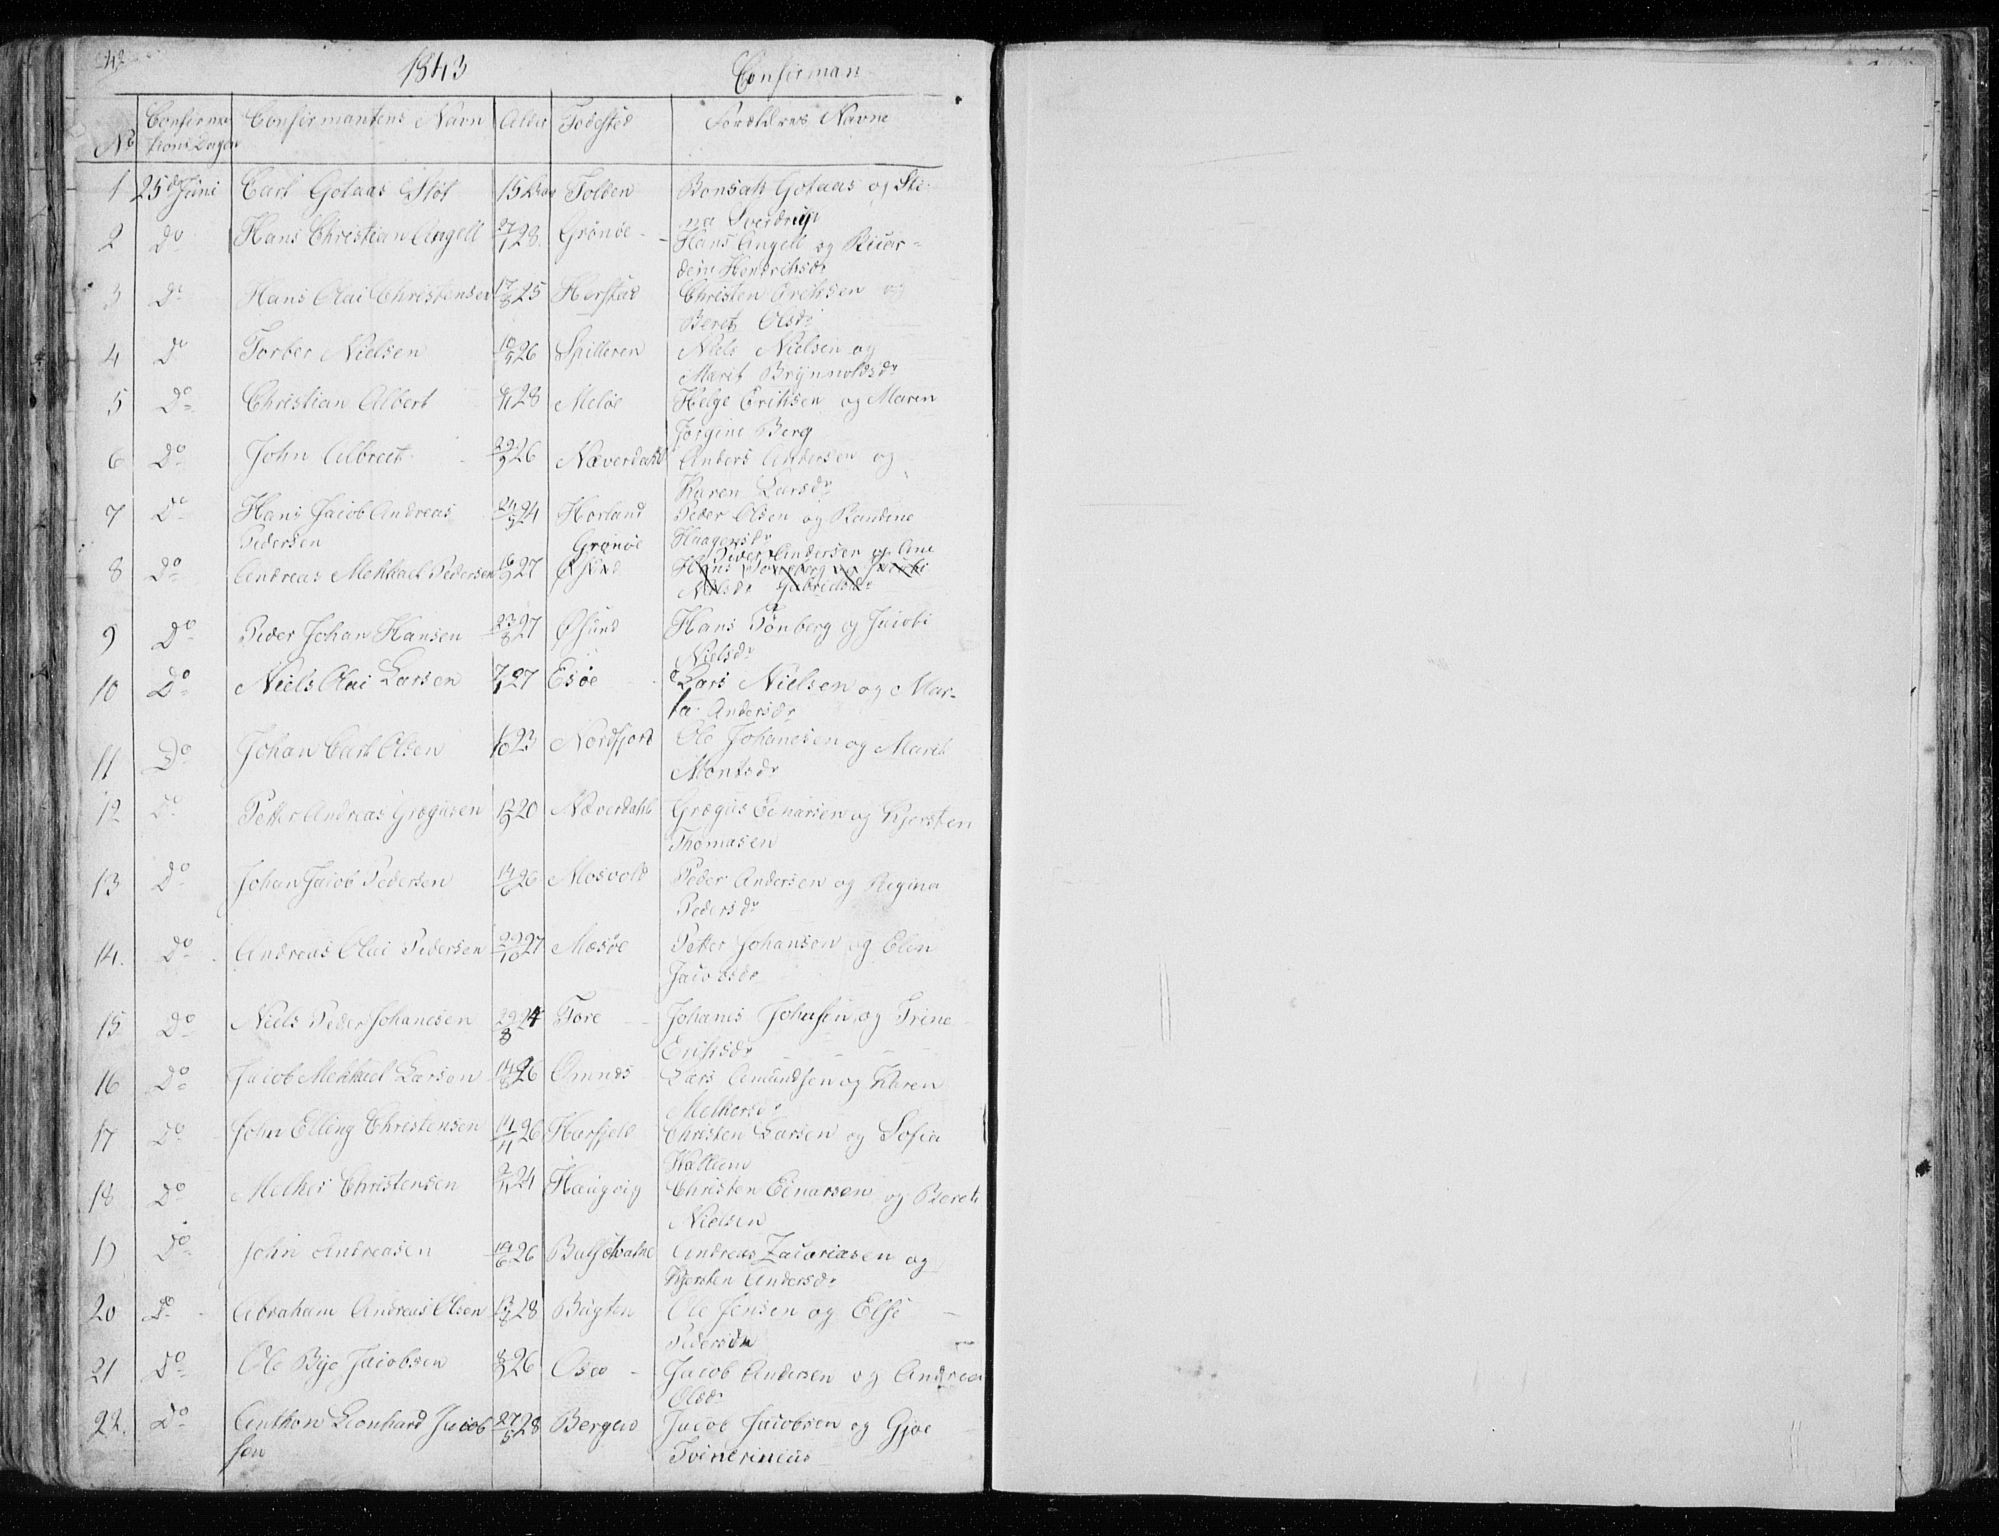 1843 Confirman
No Confirma Confirmantens Navn Alder Fødested Forældres Navne
tions Dagen
1 25de Juni Carl Gotaas Sløt 15 Folden Bonsak Gotaas og Sti
na Sverdrup
2 Do Hans Christian Angell 27/1 28. Grønøe - Hans Angell og Ricar-
dine Hendriksdr
3 Do Hans Olai Christensen 17/8 25 Horstad Christen Eriksen og
Beret Olsdr
4 Do Torber Nielsen 26 Spilderen Niels Nielsen og
Maret Brynnoldsdr
5 Do Christian Albert 28 Meløe Helge Eriksen og Maren
Jørgine Berg
6 Do John Albrect 26 Næverdahl Anders Andersen og
Karen Larsdr
7 Do Hans Jacob Andreas 24 Horland Peder Olsen og Randine
Pedersen Grønøe Haagensdr
Peder Andersen og Ane
8 Do Andreas Mekkael Pedersen 27 Øsund Hans Tønberg og Jacobi
Nielsdr Gabrielsdr
9 Do Peder Johan Hansen 23/8 27 Øsund Hans Tønberg og Jacobi
Nielsdr
10 Do Niels Olai Larsen 27 Esøe Lars Nielsen og Mar-
ta Andersdr
11 Do Johan Carl Olsen 23 Nordfjord Ole Johanesen og Maret
Montsdr
12 Do Petter Andreas Grægusen 20 Næverdahl Grægus Einarsen og Kjersten
Thomasen
13 Do Johan Jacob Pedersen 14/6 26 Mosvold Peder Andersen og Regina
Pedersdr
14. Do Andreas Olai Pedersen 22/10 27 Mæsøe Petter Johansen og Elen
Jacobsdr
15 Do Niels Peder Johanesen 29/8 24 Fore Johanes Johnsen og Trine
Eriksdr
16 Do Jacob Mekkael Larsen 26 Ømnes Lars Amundsen og Karen
Melkersdr
17 Do John Elling Christensen 14/4 26 Horfjeld Christen Larsen og Sofia
18 Do Melker Christensen 24 Haugvig Christen Einarsen og Beret
Nielsen
19 Do John Andreasen 19/6 26 Andreas Zacariasen og
Kjersten Andersdr
20 Do Abraham Andreas Olsen 13/8 28 Bugten Ole Jensen og Else
Pedersdr
21 Do Ole Bye Jacobsen 26 Osco Jacob Andersen og Andrea
Olsdr
22. Do Anthon Leonhard Jacob 27/5 28 Jacob Jacobsen og Gjøe
sen